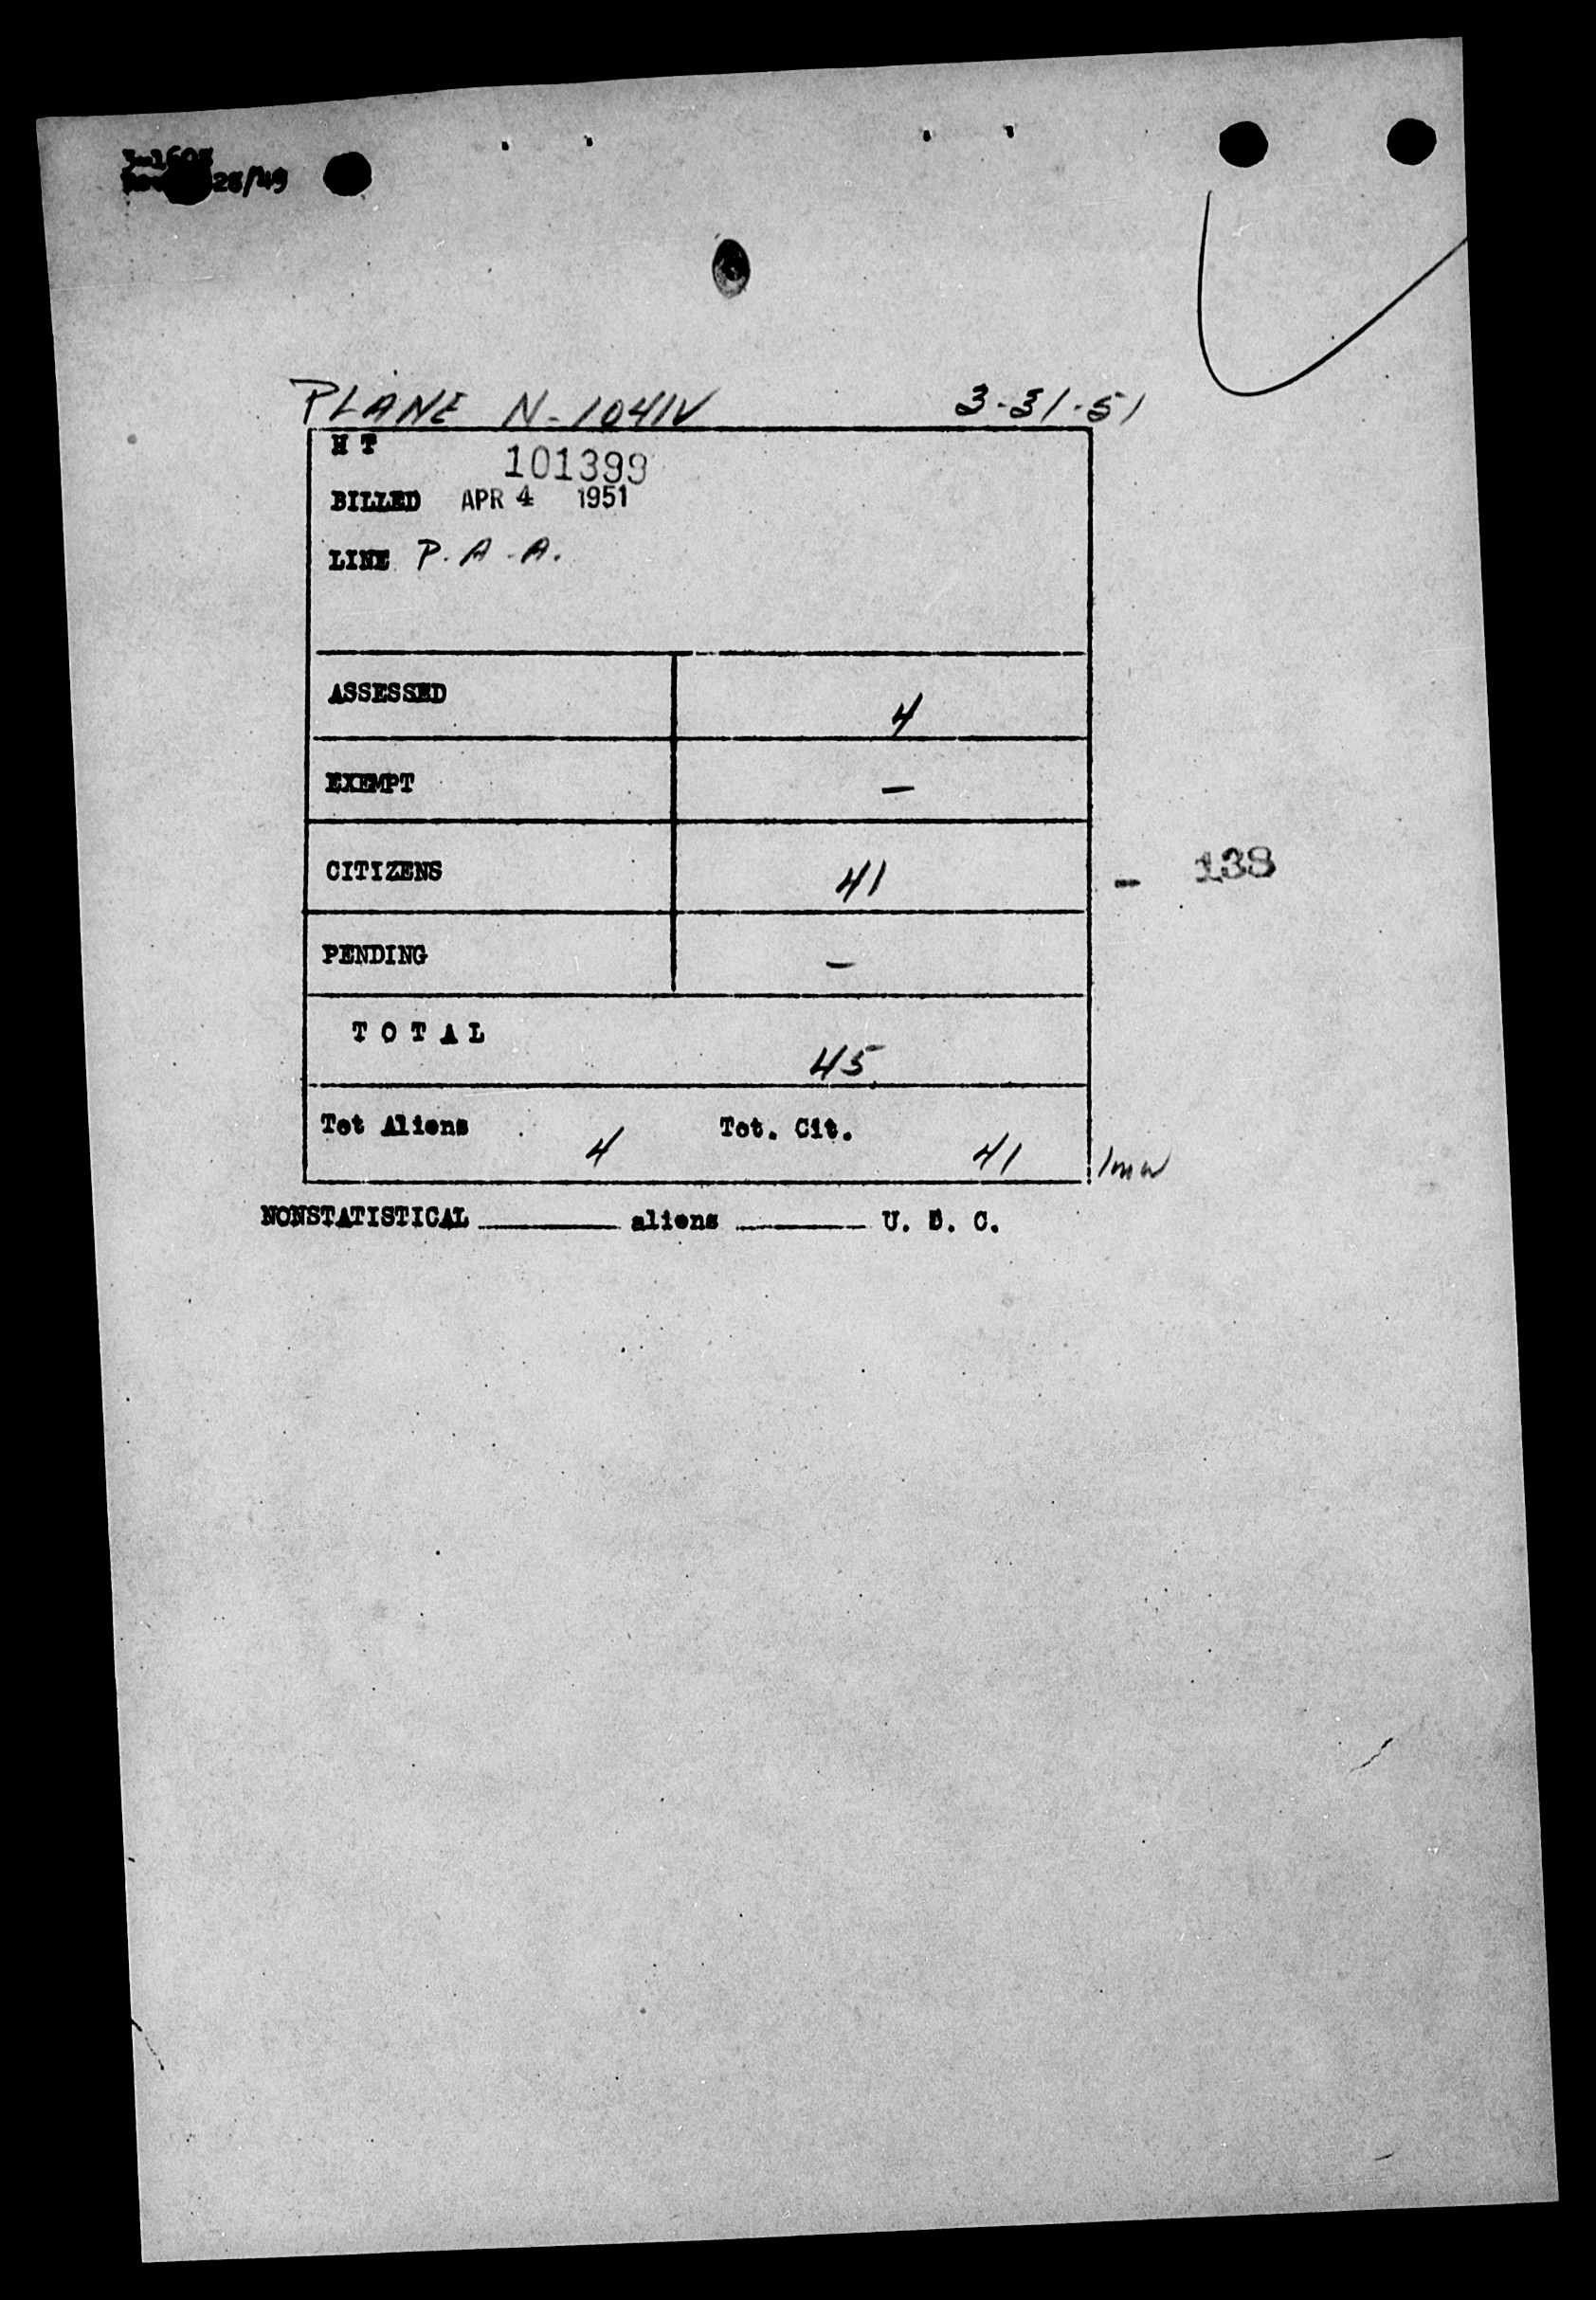 28/49
PLANE N-1041V 3-31-51
H T
101399
BILLED APR 4 1951
LINE P. A. A.
ASSESSED 4
EXEMPT —
CITIZENS 41 - 138
PENDING —
T O T A L 45
Tot Aliens 4 Tot. Cit. 41
NONSTATISTICAL ________ aliens ________ U. S. C.